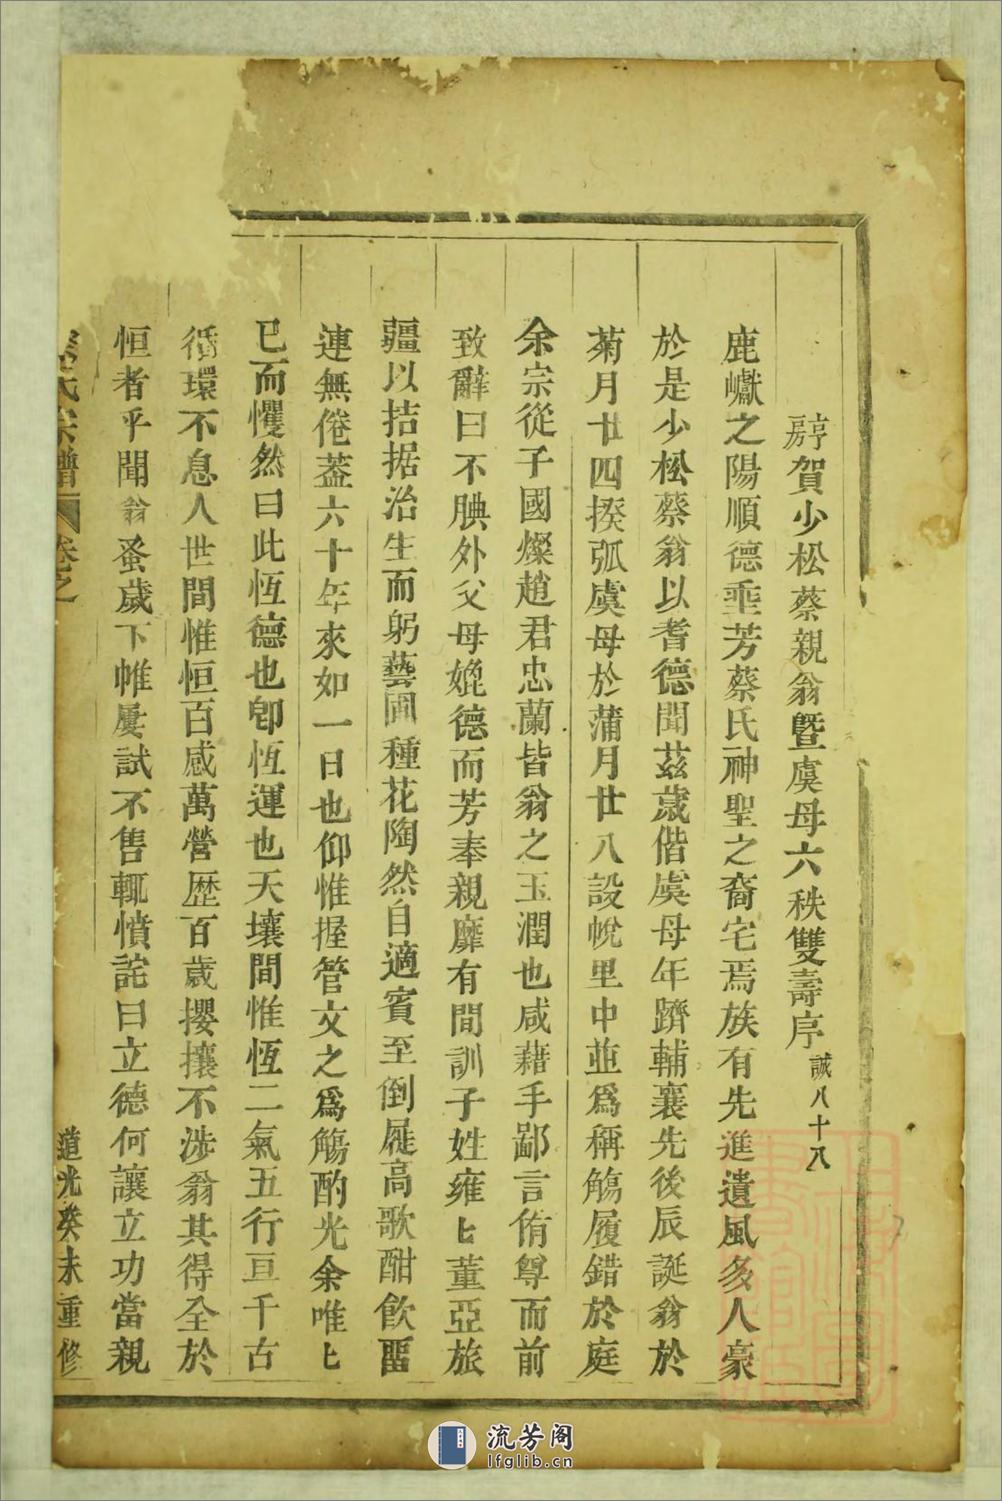 亨房賀少松蔡親翁暨虞母六秩雙壽序 誠八十八
鹿巘之陽順德垂芳蔡氏神聖之裔宅焉族有先進遺風多人豪
於是少松蔡翁以耆德聞茲歲偕虞母年躋輔襄先後辰誕翁於
菊月廿四揆弧虞母於蒲月廿八設帨里中並爲稱觴履錯於庭
余宗從子國燦趙君忠蘭皆翁之玉潤也咸藉手鄙言侑尊而前
致辭曰不腆外父母媲德而芳奉親靡有間訓子姓雍匕董亞旅
疆以拮据治生而躬藝圃種花陶然自適賓至倒屣高歌酣飲畱
連無倦葢六十年來如一日也仰惟握管文之爲觴酌光余唯匕
已而懼然曰此恆德也卽恆運也天壤間惟恆二氣五行亘千古
循環不息人世間惟恒百感萬營歴百歲攖攘不涉翁其得全於
恒者乎聞翁蚤歲下帷屢試不售輒憤詫曰立德何讓立功當親
氏宗譜 卷之 道光癸未重修
流芳阁
lfglib.cn